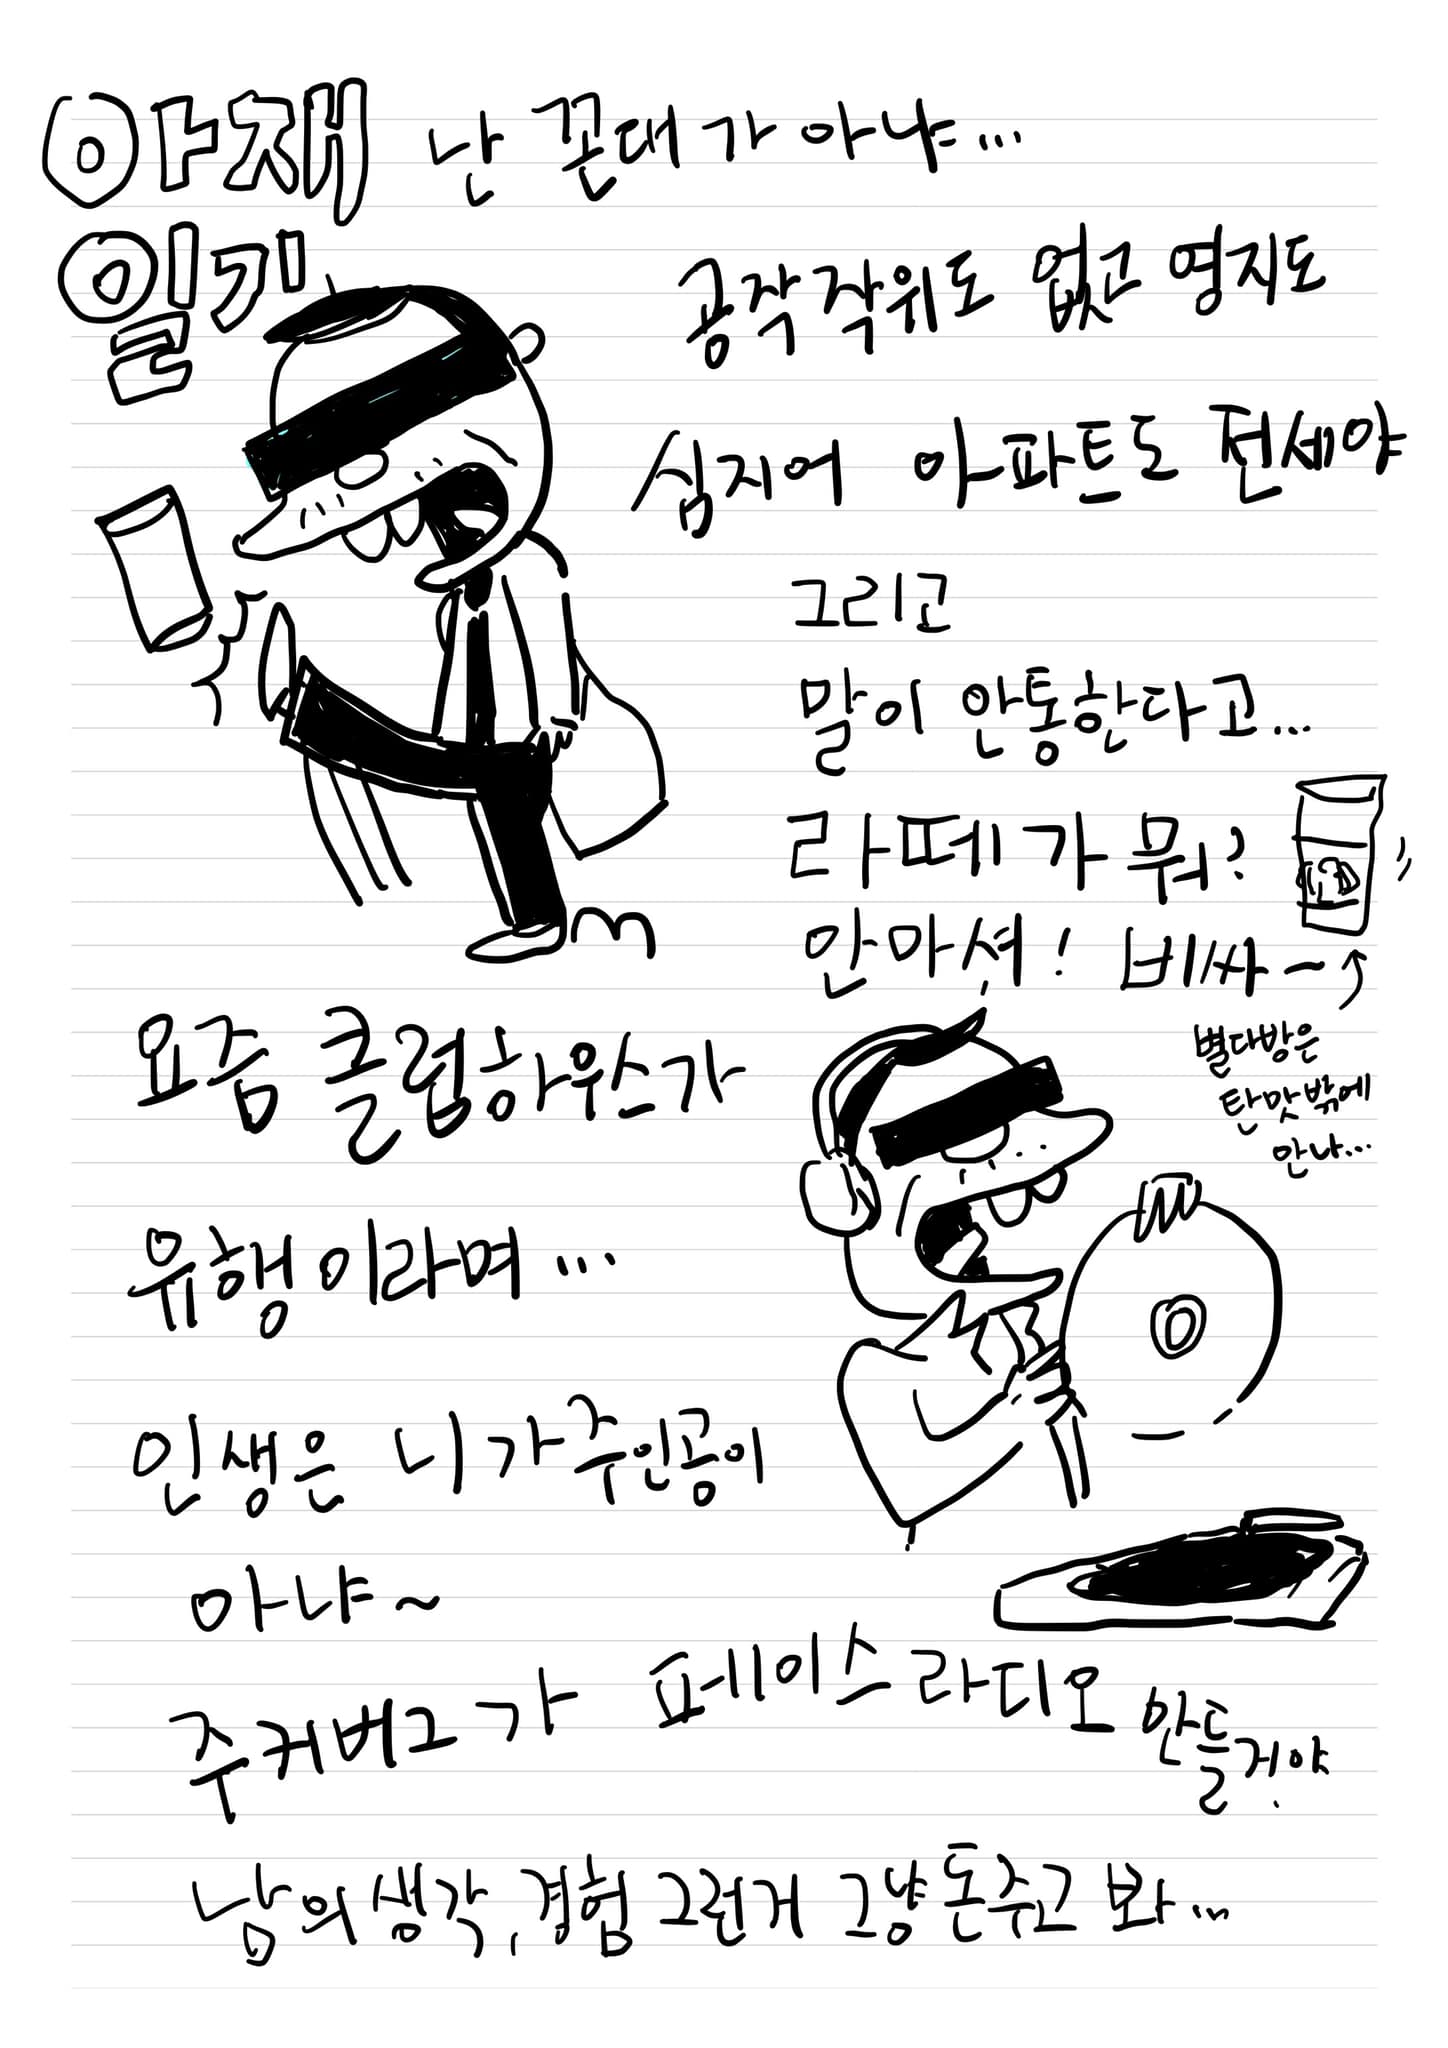 아재
일기
난 꼰대가 아냐...
공작 작위도 없고 영지도
심지어 아파트도 전세야
그리고
말이 안통한다고...
라떼가 뭐?
안마셔! 비싸~
별다방은
탄맛밖에
안나...
요즘 클럽하우스가
유행이라며...
인생은 니가 주인공이
아냐~
주커버그가 페이스라디오 만들거야
남의 생각, 경험 그런거 그냥 돈주고 봐...